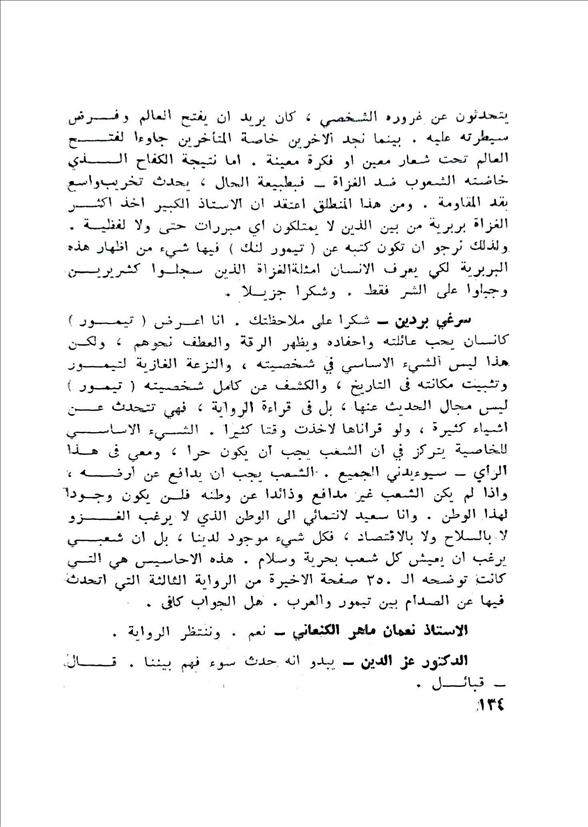 يتحدثون عن غروره الشخصي ، كان يريد ان يفتح العالم وفـــرض
سيطرته عليه . بينما نجد الآخرين خاصة المتأخرين جاوءا لفتـــح
العالم تحت شعار معين او فكرة معينة . اما نتيجة الكفاح الـــذي
خاضته الشعوب ضد الغزاة ــ فبطبيعة الحال ، يحدث تخريب واسع
بقد المقاومة . ومن هذا المنطلق اعتقد ان الاستاذ الكبير اخذ اكثـــر
الغزاة بربرية من بين الذين لا يمتلكون اي مبررات حتى ولا لفظيـة .
ولذلك نرجو ان تكون كتبه عن ( تيمور لنك ) فيها شيء من اظهار هذه
البربرية لكي يعرف الانسان امثلة الغزاة الذين سجلـوا كشريريـــن
وجباوا على الشر فقط . وشكرا جزيـلا .
سرغي بردين ــ شكرا على ملاحظتك . انا اعـرض ( تيمـــور )
كانسان يحب عائلته واحفاده ويظهر الرقة والعطف نحوهم ، ولكـن
هذا ليس الشيء الاساسي في شخصيته ، والنزعة الغازية لتيمـــور
وتثبيت مكانته في التاريخ ، والكشف عن كامل شخصيته ( تيمور )
ليس مجال الحديث عنها ، بل في قراءة الرواية ، فهي تتحدث عـــن
اشياء كثيرة ، ولو قراناها لاخذت وقتا كثيرا . الشـيء الاساســي
للخاصية يتركز في ان الشعب يجب ان يكون حرا ، ومعي في هـــذا
الراي ــ سيوءيدني الجميع . الشعب يجب ان يدافع عن ارضـــه ،
واذا لم يكن الشعب غير مدافع وذائدا عن وطنه فلـن يكون وجودا
لهذا الوطن . وانا سعيد لانتمائي الى الوطن الذي لا يرغب الغـــزو
لا بالسلاح ولا بالاقتصاد ، فكل شيء موجود لدينا ، بل ان شعبـــي
يرغب ان يعيش كل شعب بحرية وسلام . هذه الاحاسيس هي التـــي
كانت توضحه الـ ٢٥٠ صفحة الاخيرة من الرواية الثالثة التي اتحدث
فيها عن الصدام بين تيمور والعرب . هل الجواب كافي .
الاستاذ نعمان ماهر الكنعاني ــ نعم . وننتظر الرواية .
الدكتور عز الدين ــ يبدو انه حدث سوء فهم بيننا . قـــال
ــ قبائـــل .
١٣٤